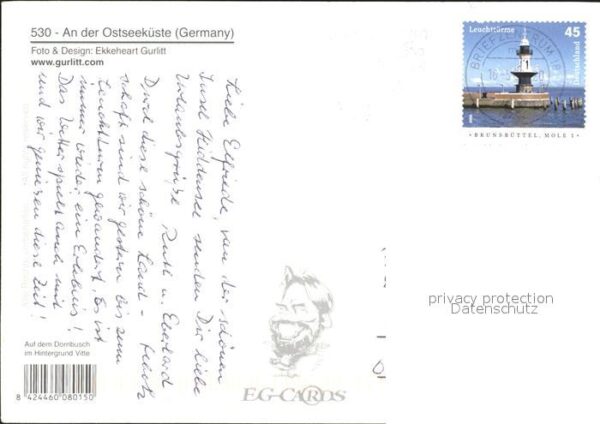 530 - An der Ostseeküste (Germany)
Foto & Design: Ekkeheart Gurlitt
www.gurlitt.com
Liebe Elfriede, von der schönen
Insel Hiddensee senden Dir liebe
Urlaubsgrüße Ruth u. Eberhard
Durch diese schöne Land-
schaft sind wir gestern bis zum
Leuchtturm gewandert. Es ist
immer wieder ein Erlebnis!
Das Wetter spielt auch mit
und wir genießen diese Zeit!
Auf dem Dornbusch
im Hintergrund Vitte
8 424460 080150
EG-CARDS
Leuchttürme 45
Deutschland
BRIEFZENTRUM
BRUNSBÜTTEL, MOLE 1
privacy protection
Datenschutz